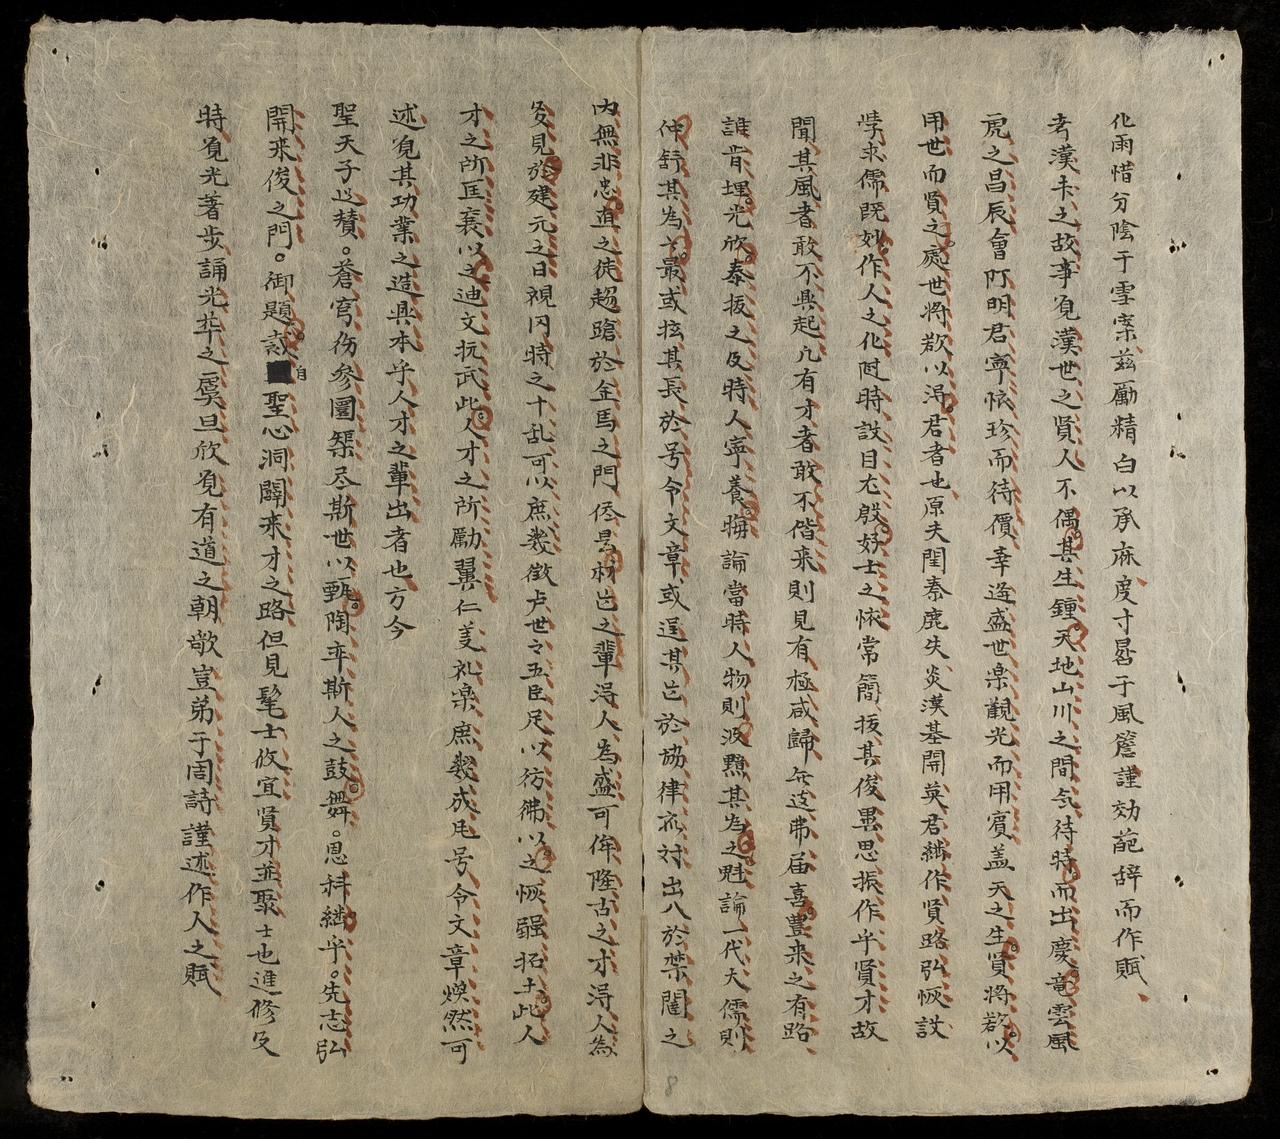 化雨惜分陰于雪案兹勵精白以承庥度寸晷于風簷謹効葩辞而作賦
考漢朱之故事覓漢世之賢人不偶其生鍾天地山川之間气待時而出慶竜雲風
虎之昌辰會阿明君寧恢珍而待價幸逢盛世楽觀光而用賓盖天之生賢将欲以
用世而賢之處世将欲以淂君者也原夫閏秦鹿失炎漢基開英君継作賢路弘恢設
孛求儒既妙作人之化时時設目尤殷好士之懷常簡拔其俊異思振作乎賢才故
聞其風者敢不興起凢有才者敢不偕来則見有極咸歸無遠弗届喜豊来之有路
誰肯埋光欣泰拔之及時人寧養晦論當時人物則汲黯其為之魁論一代大儒則
仲舒其為之最或抎其長於号令文章或逞其 於協律 对出入於禁闥之
内無非忠直之徒趨蹌於金馬之門 是材 之輩淂人為盛可侔隆古之才淂人為
多見於建元之日視冈時之十乱可以庶幾徴卢世之五臣足以彷彿以之恢疆拓土此人
才之所匡襄以之迪文抚武此人才之所勵翼仁义礼楽庶幾成 号令文章焕然可
述覓其功業之造具本乎人才之輩出者也方今
聖天子 賛蒼穹仂參圜 尽斯世以甄陶卒斯人之鼓舞恩科継乎先志弘
開来俊之門御題 自聖心洞闢来才之路但見髦士攸宜賢才並聚士也進修及
時覓光著步誦光华之 旦欣覓有道之朝歌豈弟于周詩謹述作人之賦
8